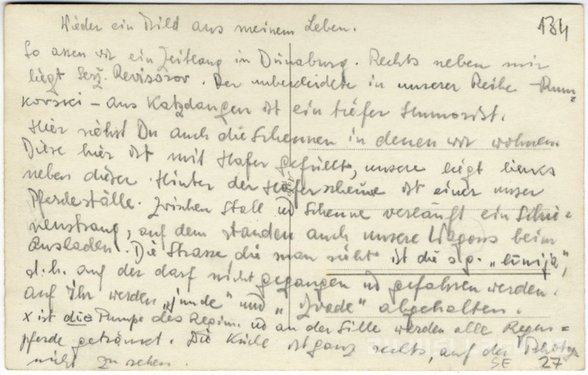 Wieder ein Bild aus meinem Leben.
134
So assen wir ein Zeitlang in Dünaburg. Rechts neben mir
liegt Serj. Revisorov. Der unbekleidete in unserer Reihe
korski - aus Katzdangen ist ein tiefer Humorist.
Hier siehst Du auch die Scheunen in denen wir wohnen
Diese hier ist mit Hafer gefüllt, unsere liegt links
neben dieser. Hinter der Haferscheune ist einer unser
Pferdeställe. Zwischen Stall u Scheune verläuft ein Schie=
nenstrang, auf dem standen auch unsere Wagons beim
Ausladen. Die Strasse die man sieht ist die sog. „Linija",
d.h. auf der darf nicht gegangen u gefahren werden.
Auf ihr werden und abgehalten.
x ist die Pumpe des Regim. u an der Sille werden alle Regim=
pferde getränkt. Die Küche ist ganz rechts, auf der Photogr
nicht zu sehen.
SE 27